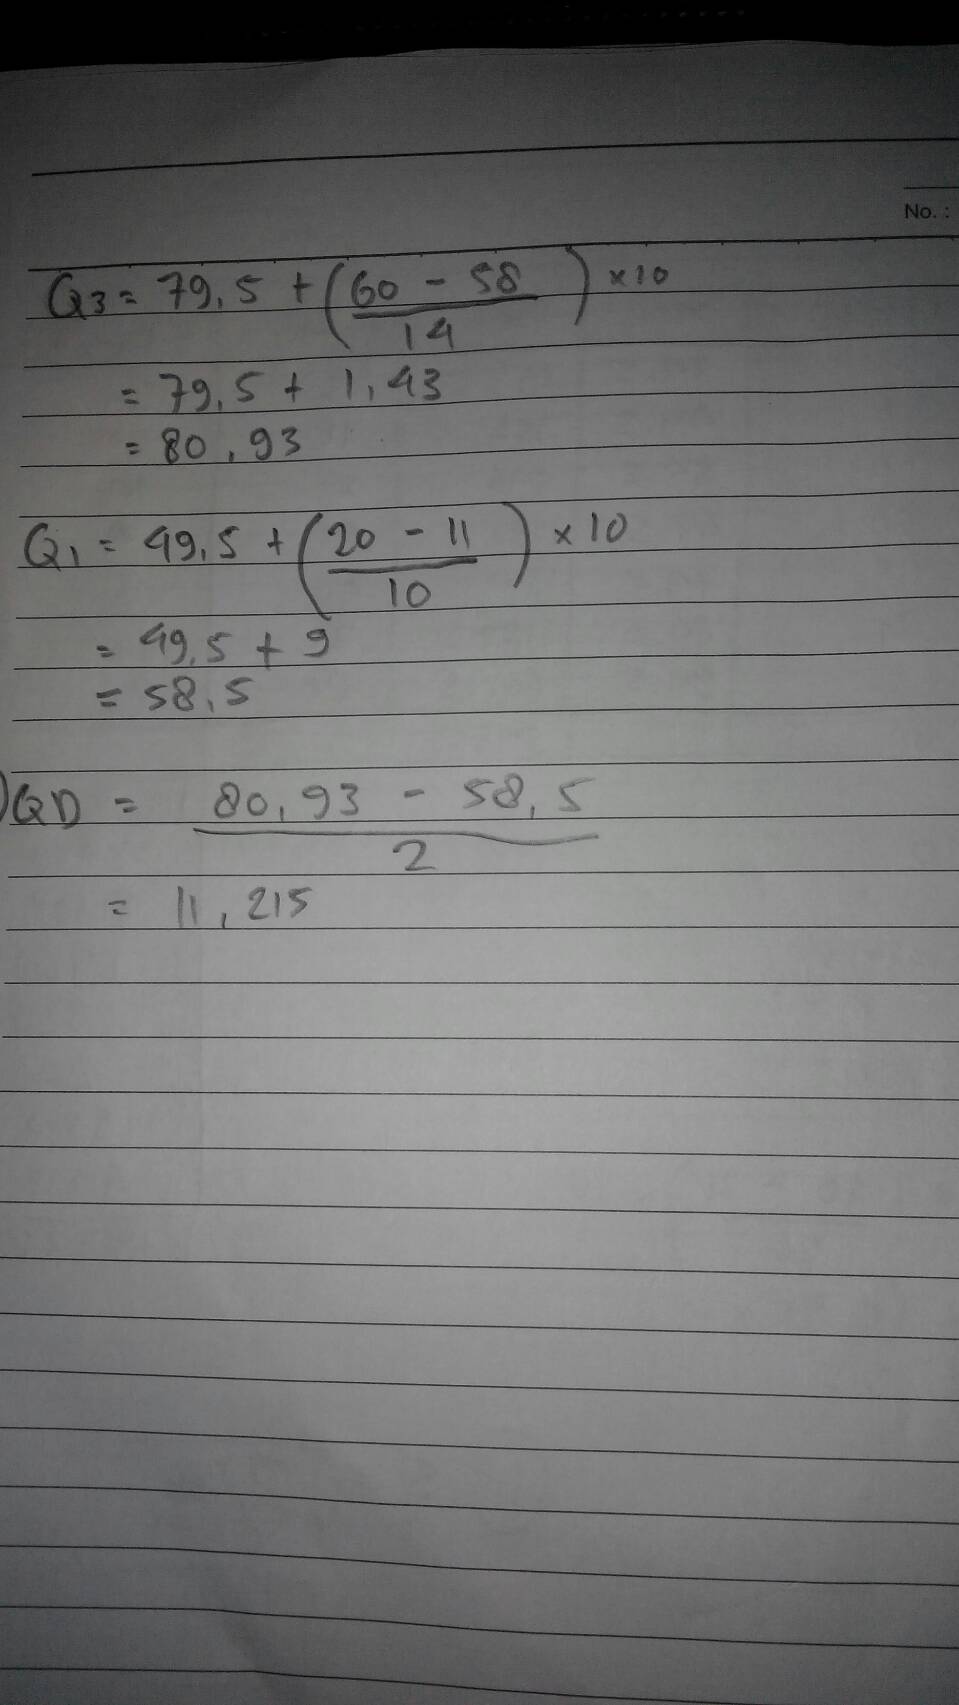 No. :
Q3 = 79,5 + (60 - 58 / 14) x 10
= 79,5 + 1,43
= 80,93
Q1 = 49,5 + (20 - 11 / 10) x 10
= 49,5 + 9
= 58,5
) QD = 80,93 - 58,5 / 2
= 11,215